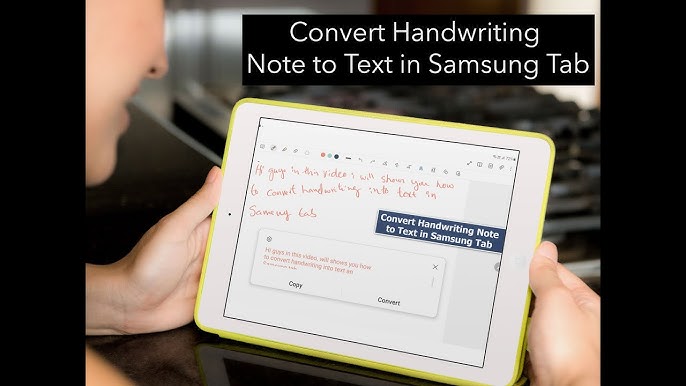 Convert Handwriting
Note to Text in Samsung Tab
Hi guys in this video i will shows you how
to convert handwriting into text in
Samsung tab
Convert Handwriting Note
to Text in Samsung Tab
Hi guys in this video, will shows you how
to convert handwriting into text an
Copy
Convert